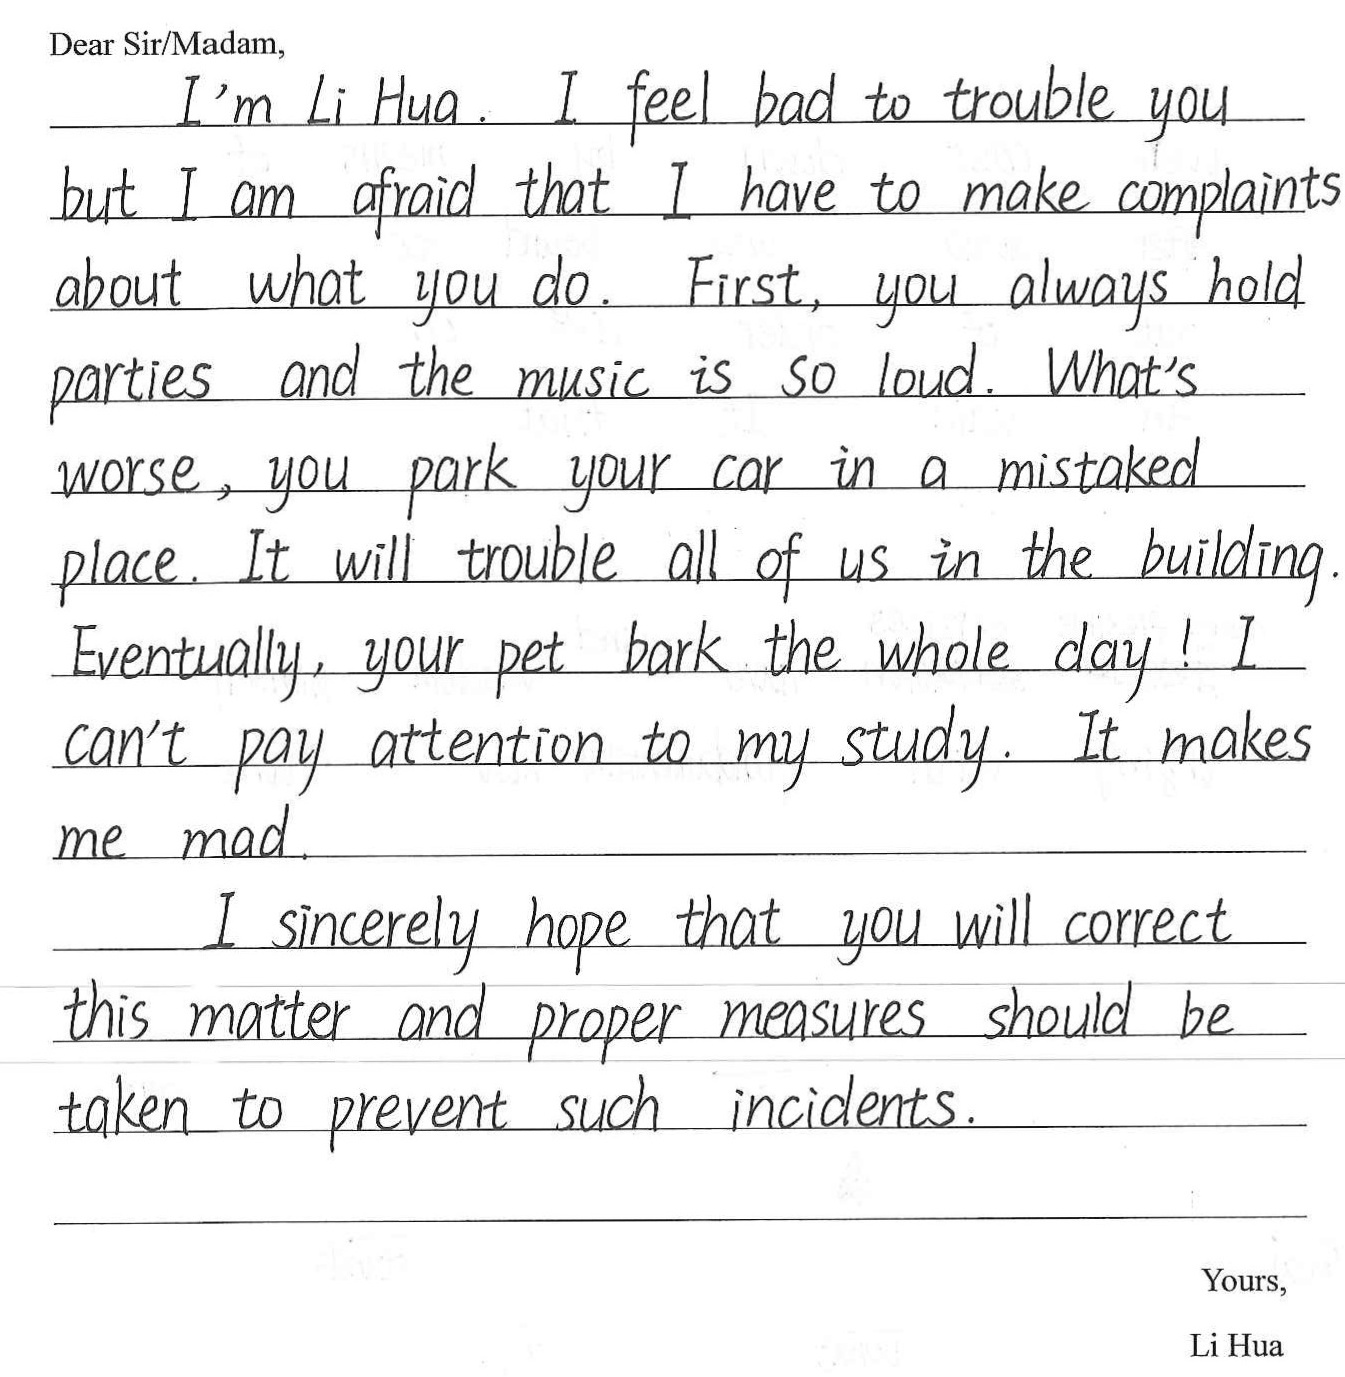 Dear Sir/Madam,
I'm Li Hua. I feel bad to trouble you
but I am afraid that I have to make complaints
about what you do. First, you always hold
parties and the music is so loud. What's
worse, you park your car in a mistaked
place. It will trouble all of us in the building.
Eventually, your pet bark the whole day! I
can't pay attention to my study. It makes
me mad.
I sincerely hope that you will correct
this matter and proper measures should be
taken to prevent such incidents.
Yours,
Li Hua